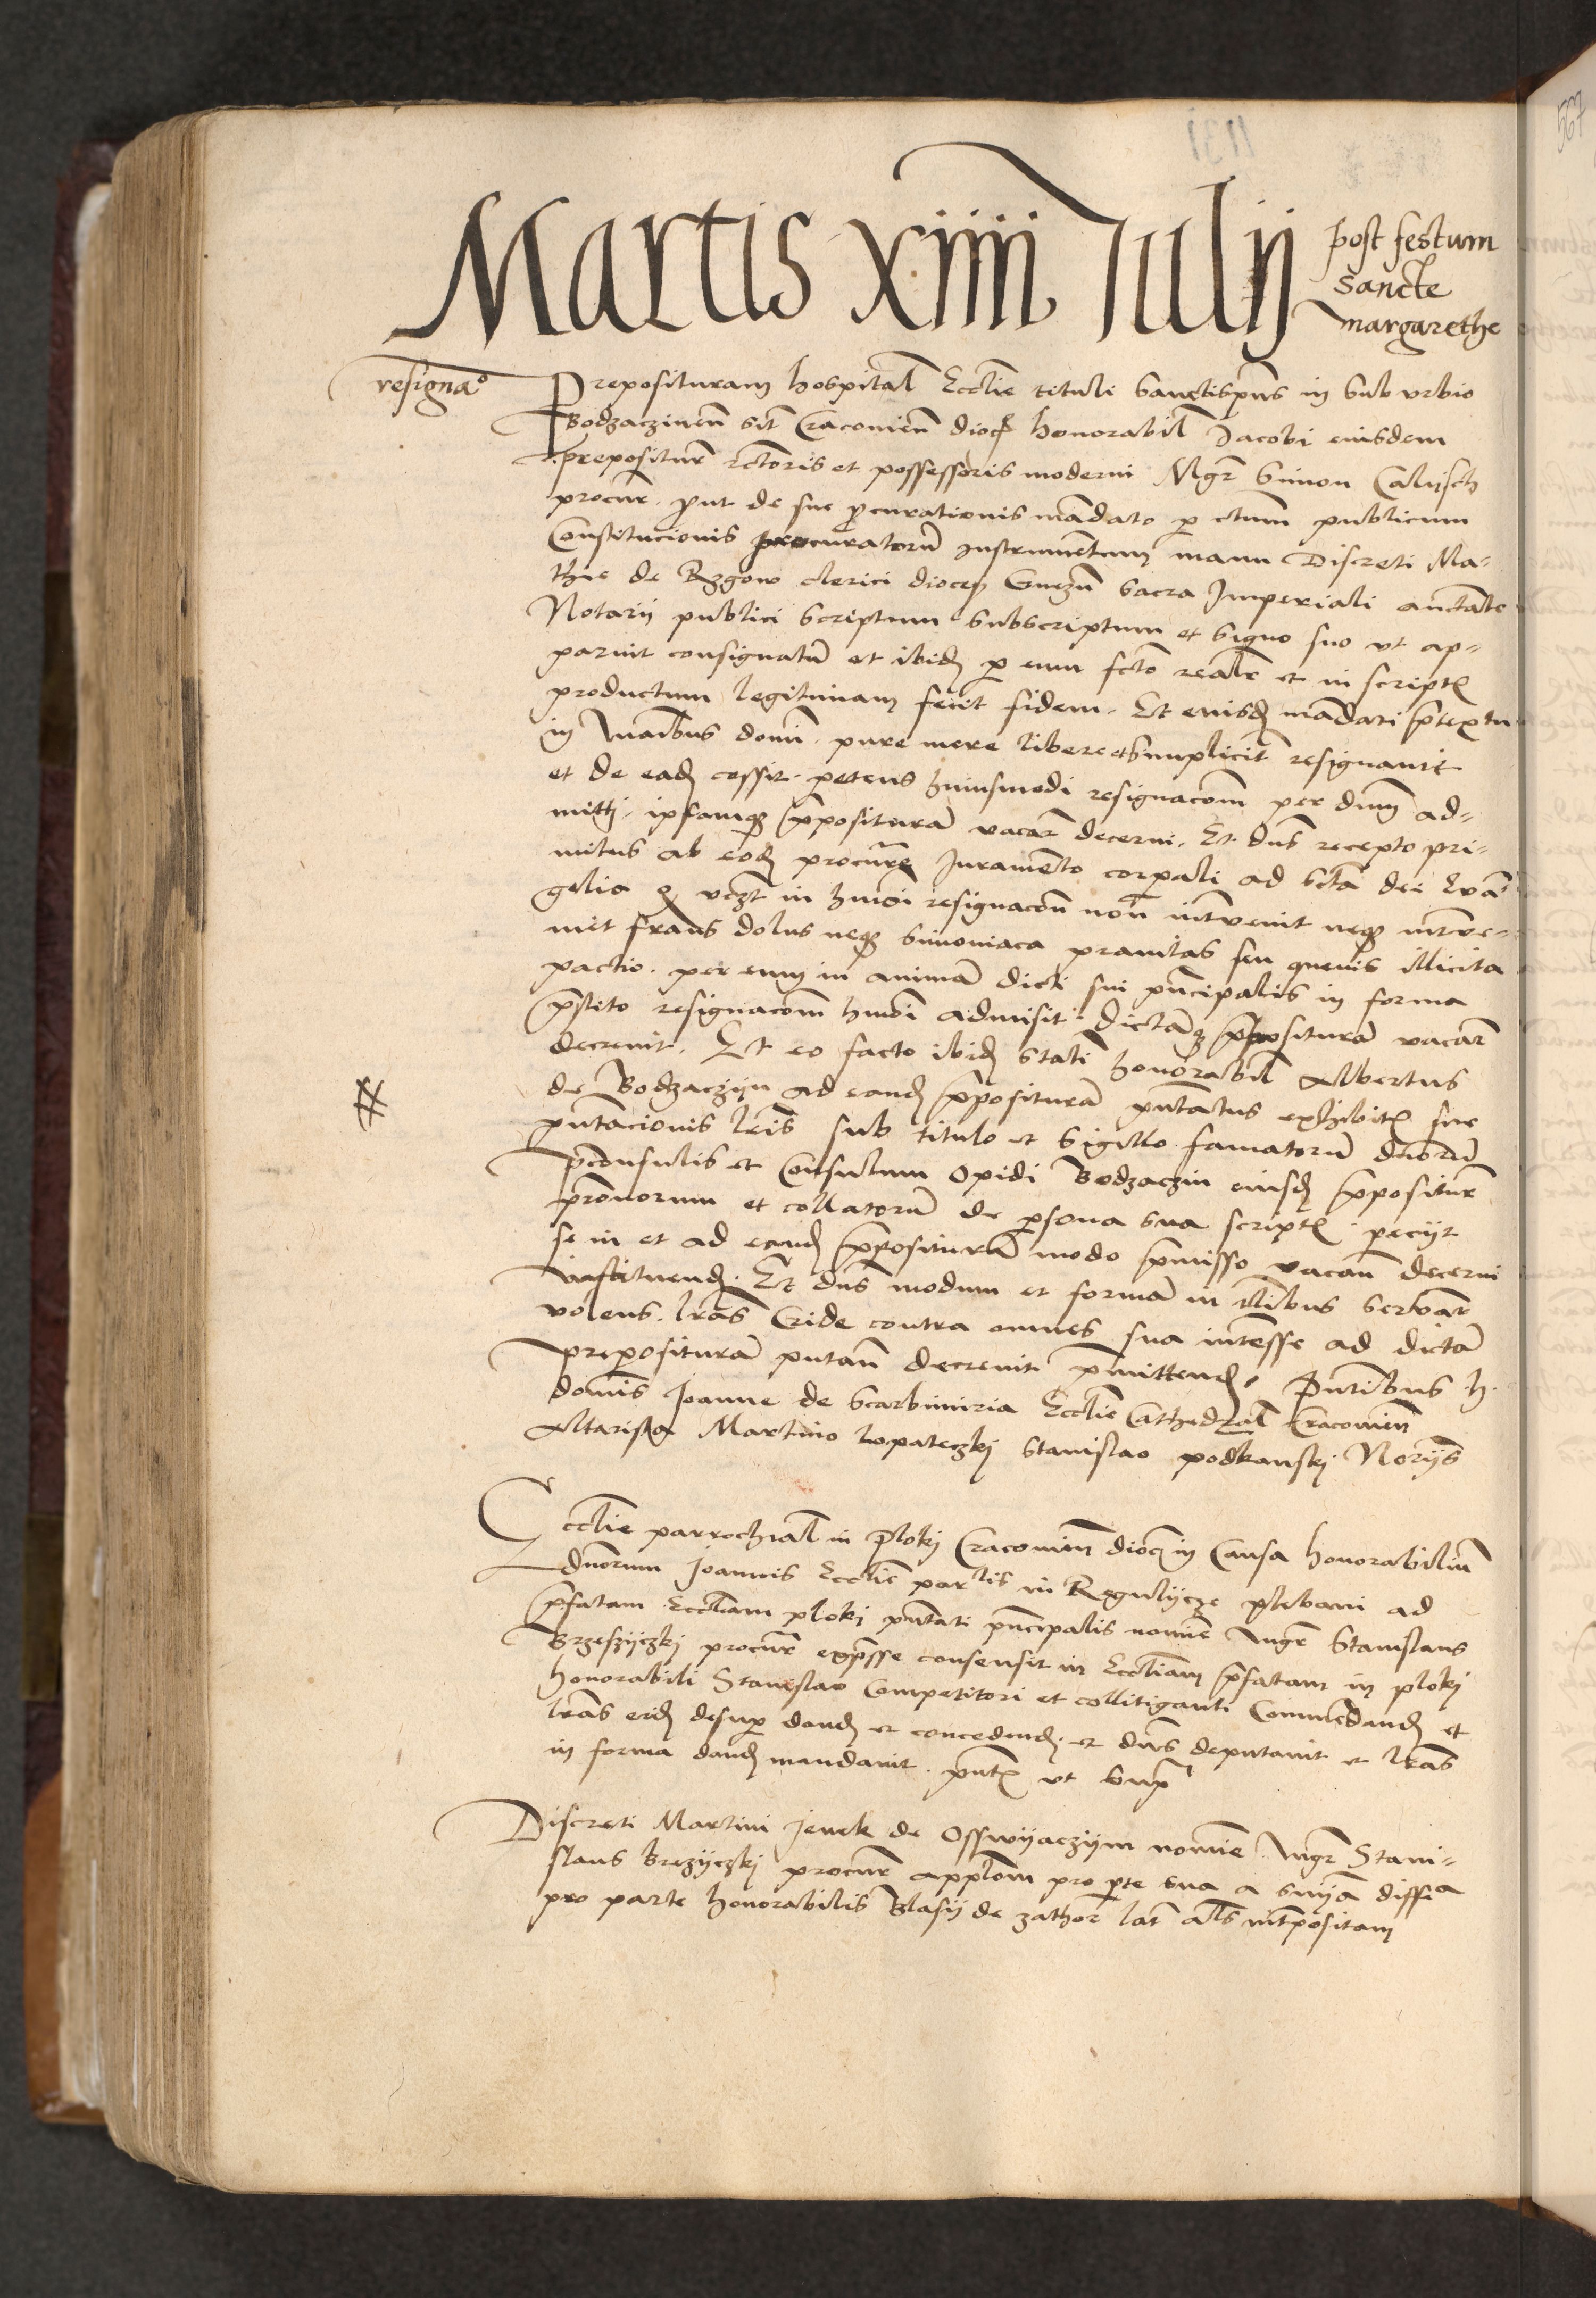 Martis xiiii Julij
post festum
sancte
margarethe
resignao
Preposituram hospital Ecclie tituli Sanctispus in sub urbio
Bodzaczinen sit Cracovien dioc honorabil Jacobi eiusdem
prepositure rectoris et possessoris moderni Mgr Simon Calijsch
procur. put de sue pcurationis mandato p ctum publicum
Constitucionis procuratoru instrumentum manu Discreti Ma-
thie de Rzgow clerici dioces Gnezn Sacra Imperiali auctate
Notarij publici scriptum subscriptum et signo suo ut ap-
paruit consignatu et ibid p eum fcto realr et in script
productum legitimam fecit fidem. Et eiusd mandati ptextu
in manibus domi. pure mere libere et simplicit resignavit
et de ead cessit. petens huiusmodi resignacom per dnm ad-
mitti. ipsamq ppositura vacar decerni. Et dns recepto pri-
mitus ab eod procure Juramento corpali ad scta dei Eva-
gelia q vczt in hmoi resignacon non intvenit neq intve-
nit fraus dolus neq simoniaca pravitas seu quevis illicita
pactio. per eum in anima dicti sui pncipalis in forma
pstito resignacom hmoi admisit. dictaq ppositura vacar
decrevit. Et eo facto ibid stati honorabil Albertus
de Bodzaczijn ad eand ppositura pntatus exhibit sue
pntacionis lris sub titulo et sigillo famatoru dnoru
pconsulis et Consulum Opidi Bodzaczin eiusd ppositur
pronorum et collatoru de psona sua script. pecijt
se in et ad eand ppositura modo pmisso vacan decerni
instituend. Et dns modum et forma in tlibus servar
volens. lras Cride contra omnes sua intesse ad dicta
prepositura putan decrevit pmittend. Pntibus h.
domis Joanne de Scarbimiria Ecclie Cathedral Cracovien
Altarista Martino Lopateczki Stanislao podkanski Norijs
Ecclie parrochial in ploki Cracovien dioc in Causa honorabiliu
dnorum Joannis Ecclie parlis in Regulijcze plebani ad
pfatam Eccliam ploki pntati pncipalis nomie Mgr Stanislaus
Brzeszijczki procur expsse consensit in Eccliam pfatam in ploki
honorabili Stanislao Competitori et collitiganti Commedand et
lras eid desup dand et concedend. et dns deputavit et lras
in forma dand mandavit. pnt ut supr
Discreti Martini Jenek de Osswijaczijm nomie Mgr Stani-
slaus Brezijczki procur applom pro pte sua a snija diffea
pro parte honorabilis Blasij de zathor lat als intpositam
567